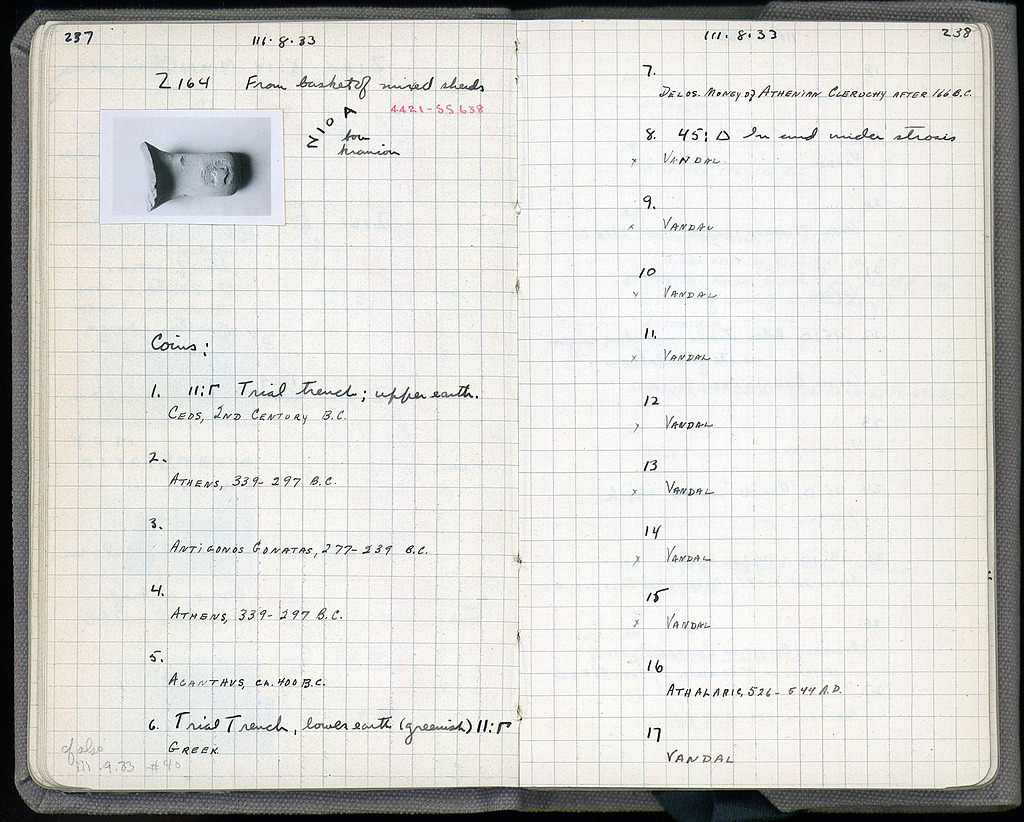 237
111·8·33
Z 164 From basket of mixed sherds
4421-SS 638
NIOA
bou
kranion
Coins:
1. 11:Γ Trial trench; upper earth.
CEOS, 2ND CENTURY B.C.
2.
ATHENS, 339-297 B.C.
3.
ANTIGONOS GONATAS, 277-239 B.C.
4.
ATHENS, 339-297 B.C.
5.
ACANTHUS, CA. 400 B.C.
6. Trial Trench, lower earth (greenish) 11:Γ
GREEK
cf also
111.9.33 #40
111·8·33
238
7.
DELOS. MONEY OF ATHENIAN CLERUCHY AFTER 166 B.C.
8. 45:Δ In and under strosis
x VANDAL
9.
x VANDAL
10
x VANDAL
11.
x VANDAL
12
x VANDAL
13
x VANDAL
14
x VANDAL
15
x VANDAL
16
ATHALARIC, 526-544 A.D.
17
VANDAL